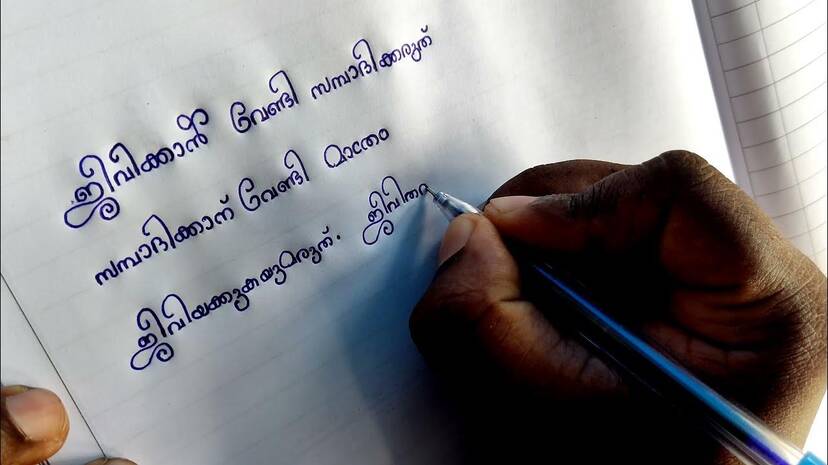 ജീവിക്കാൻ വേണ്ടി സമ്പാദിക്കരുത്
സമ്പാദിക്കാന് വേണ്ടി മാത്രം
ജീവിയക്കുകയുമരുത്. ജീവിതം